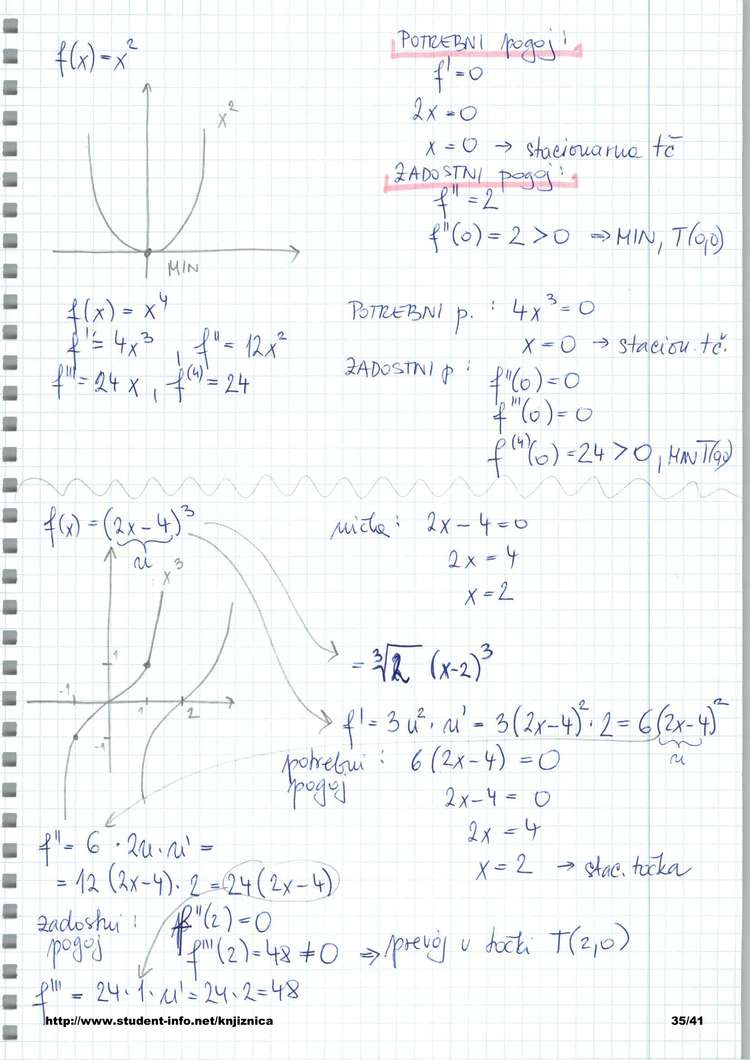 f(x) = x²
x²
MIN
POTREBNI pogoj:
f' = 0
2x = 0
x = 0 → stacionarna tč
ZADOSTNI pogoj:
f'' = 2
f''(0) = 2 > 0 ⇒ MIN, T(0,0)
f(x) = x⁴
f' = 4x³ , f'' = 12x²
f''' = 24x , f⁽⁴⁾ = 24
POTREBNI p. : 4x³ = 0
x = 0 → stacion. tč.
ZADOSTNI p :
f''(0) = 0
f'''(0) = 0
f⁽⁴⁾(0) = 24 > 0, MIN T(0,0)
f(x) = (2x-4)³
u
x³
1
-1
1
2
-1
ničla: 2x - 4 = 0
2x = 4
x = 2
= ∛2 (x-2)³
f' = 3u² · u' = 3(2x-4)² · 2 = 6(2x-4)²
u
potrebni pogoj : 6(2x-4) = 0
2x-4 = 0
2x = 4
x = 2 → stac. točka
f'' = 6 · 2u · u' =
= 12(2x-4) · 2 = 24(2x-4)
zadostni pogoj : f''(2) = 0
f'''(2) = 48 ≠ 0 ⇒ prevoj v točki T(2,0)
f''' = 24 · 1 · u' = 24 · 2 = 48
http://www.student-info.net/knjiznica
35/41